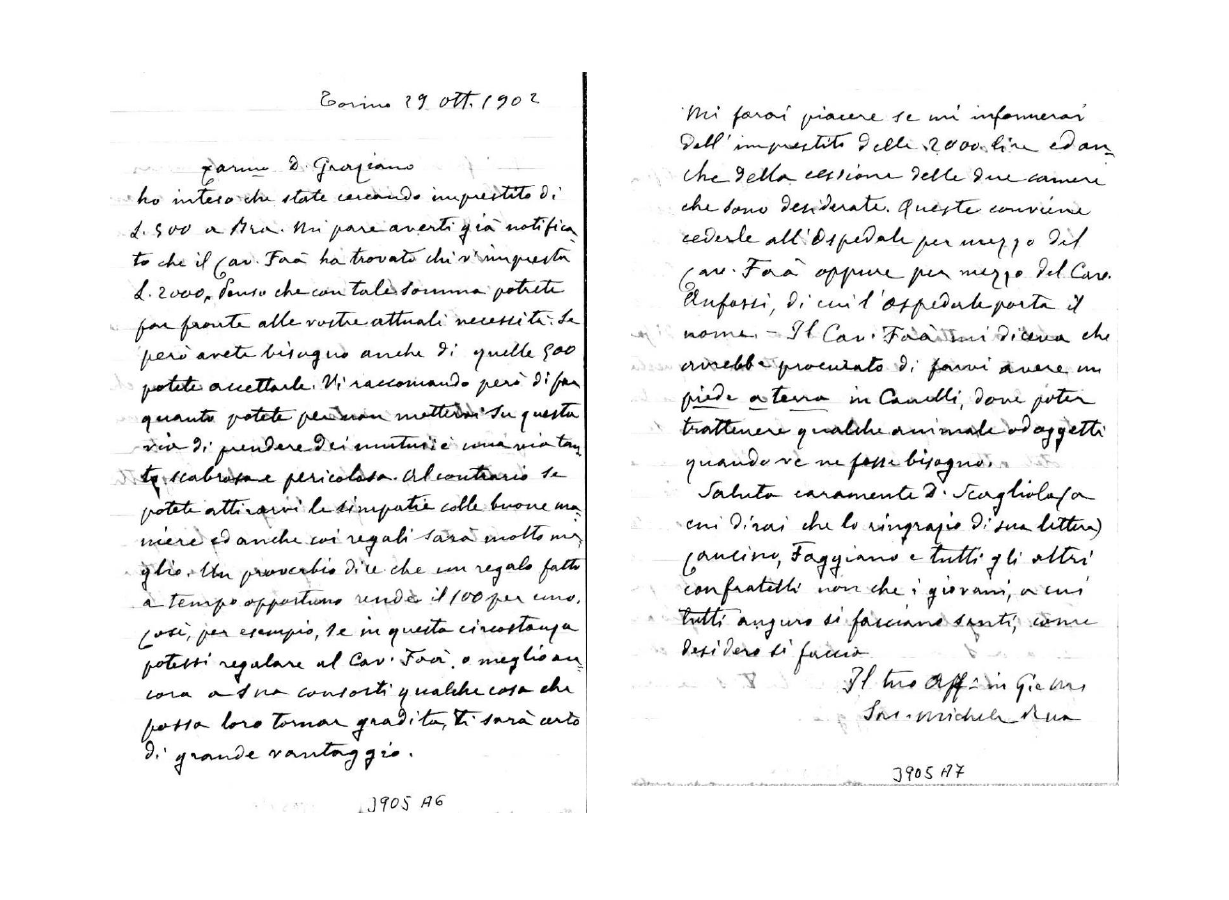 Torino 29 Ott. 1902
Car.mo D. Graziano
ho inteso che state cercando imprestito di
L. 500 a Bra. Mi pare averti già notifica
to che il Cav. Faà ha trovato chi v'impresta
L. 2000. Penso che con tale somma potrete
far fronte alle vostre attuali necessità. Se
però avete bisogno anche di quelle 500
potete accettarle. Vi raccomando però di far
quanto potete per non mettervi su questa
via di prendere dei mutui: è una via tan
to scabrosa e pericolosa. Al contrario se
potete attirarvi le simpatie colle buone ma=
niere ed anche coi regali sarà molto me=
glio. Un proverbio dice che un regalo fatto
a tempo opportuno rende il 100 per uno.
Così, per esempio, se in questa circostanza
potessi regalare al Cav. Faà, o meglio an=
cora a sua consorti qualche cosa che
possa loro tornar gradita, ti sarà certo
di grande vantaggio.
J905 A6
Mi farai piacere se mi informerai
dell'imprestito delle 2000 lire ed an=
che della cessione delle due camere
che sono desiderate. Queste conviene
cederle all'Ospedale per mezzo del
Cav. Faà oppure per mezzo del Cav.
Anfossi, di cui l'Ospedale porta il
nome. - Il Cav. Faà mi diceva che
avrebbe procurato di farvi avere un
piede a terra in Canelli, dove poter
trattenere qualche animale od oggetti
quando ve ne fosse bisogno.
Saluta caramente D. Scagliola (a
cui dirai che lo ringrazio di sua lettera)
Cancino, Faggiano e tutti gli altri
confratelli non che i giovani, a cui
tutti auguro si facciano santi, come
desidero si faccia
Il tuo Aff. in G. e M.
Sac. Michele Rua
J905 A7